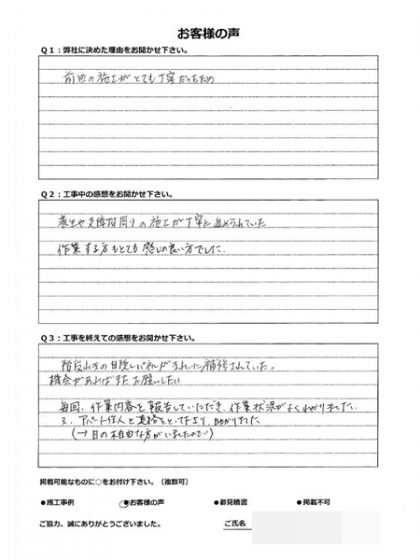 お客様の声
Q1：弊社に決めた理由をお聞かせ下さい。
前回の施工がとても丁寧だったため
Q2：工事中の感想をお聞かせ下さい。
養生や支障物周りの施工が丁寧に進められていた
作業する方もとても感じの良い方でした.
Q3：工事を終えての感想をお聞かせ下さい。
階段の目隠しパネルがきれいに補修されていた。
機会があればまたお願いしたい
毎回、作業内容を報告していただき、作業状況がよくわかりました.
又、アパート住人と連絡をとって下さり、助かりました
(→目の不自由な方がいましたので)
掲載可能なものに○をお付け下さい。（複数可）
●施工事例 ●お客様の声 ●御見積書 ●掲載不可
ご協力、誠にありがとうございました。 ご氏名